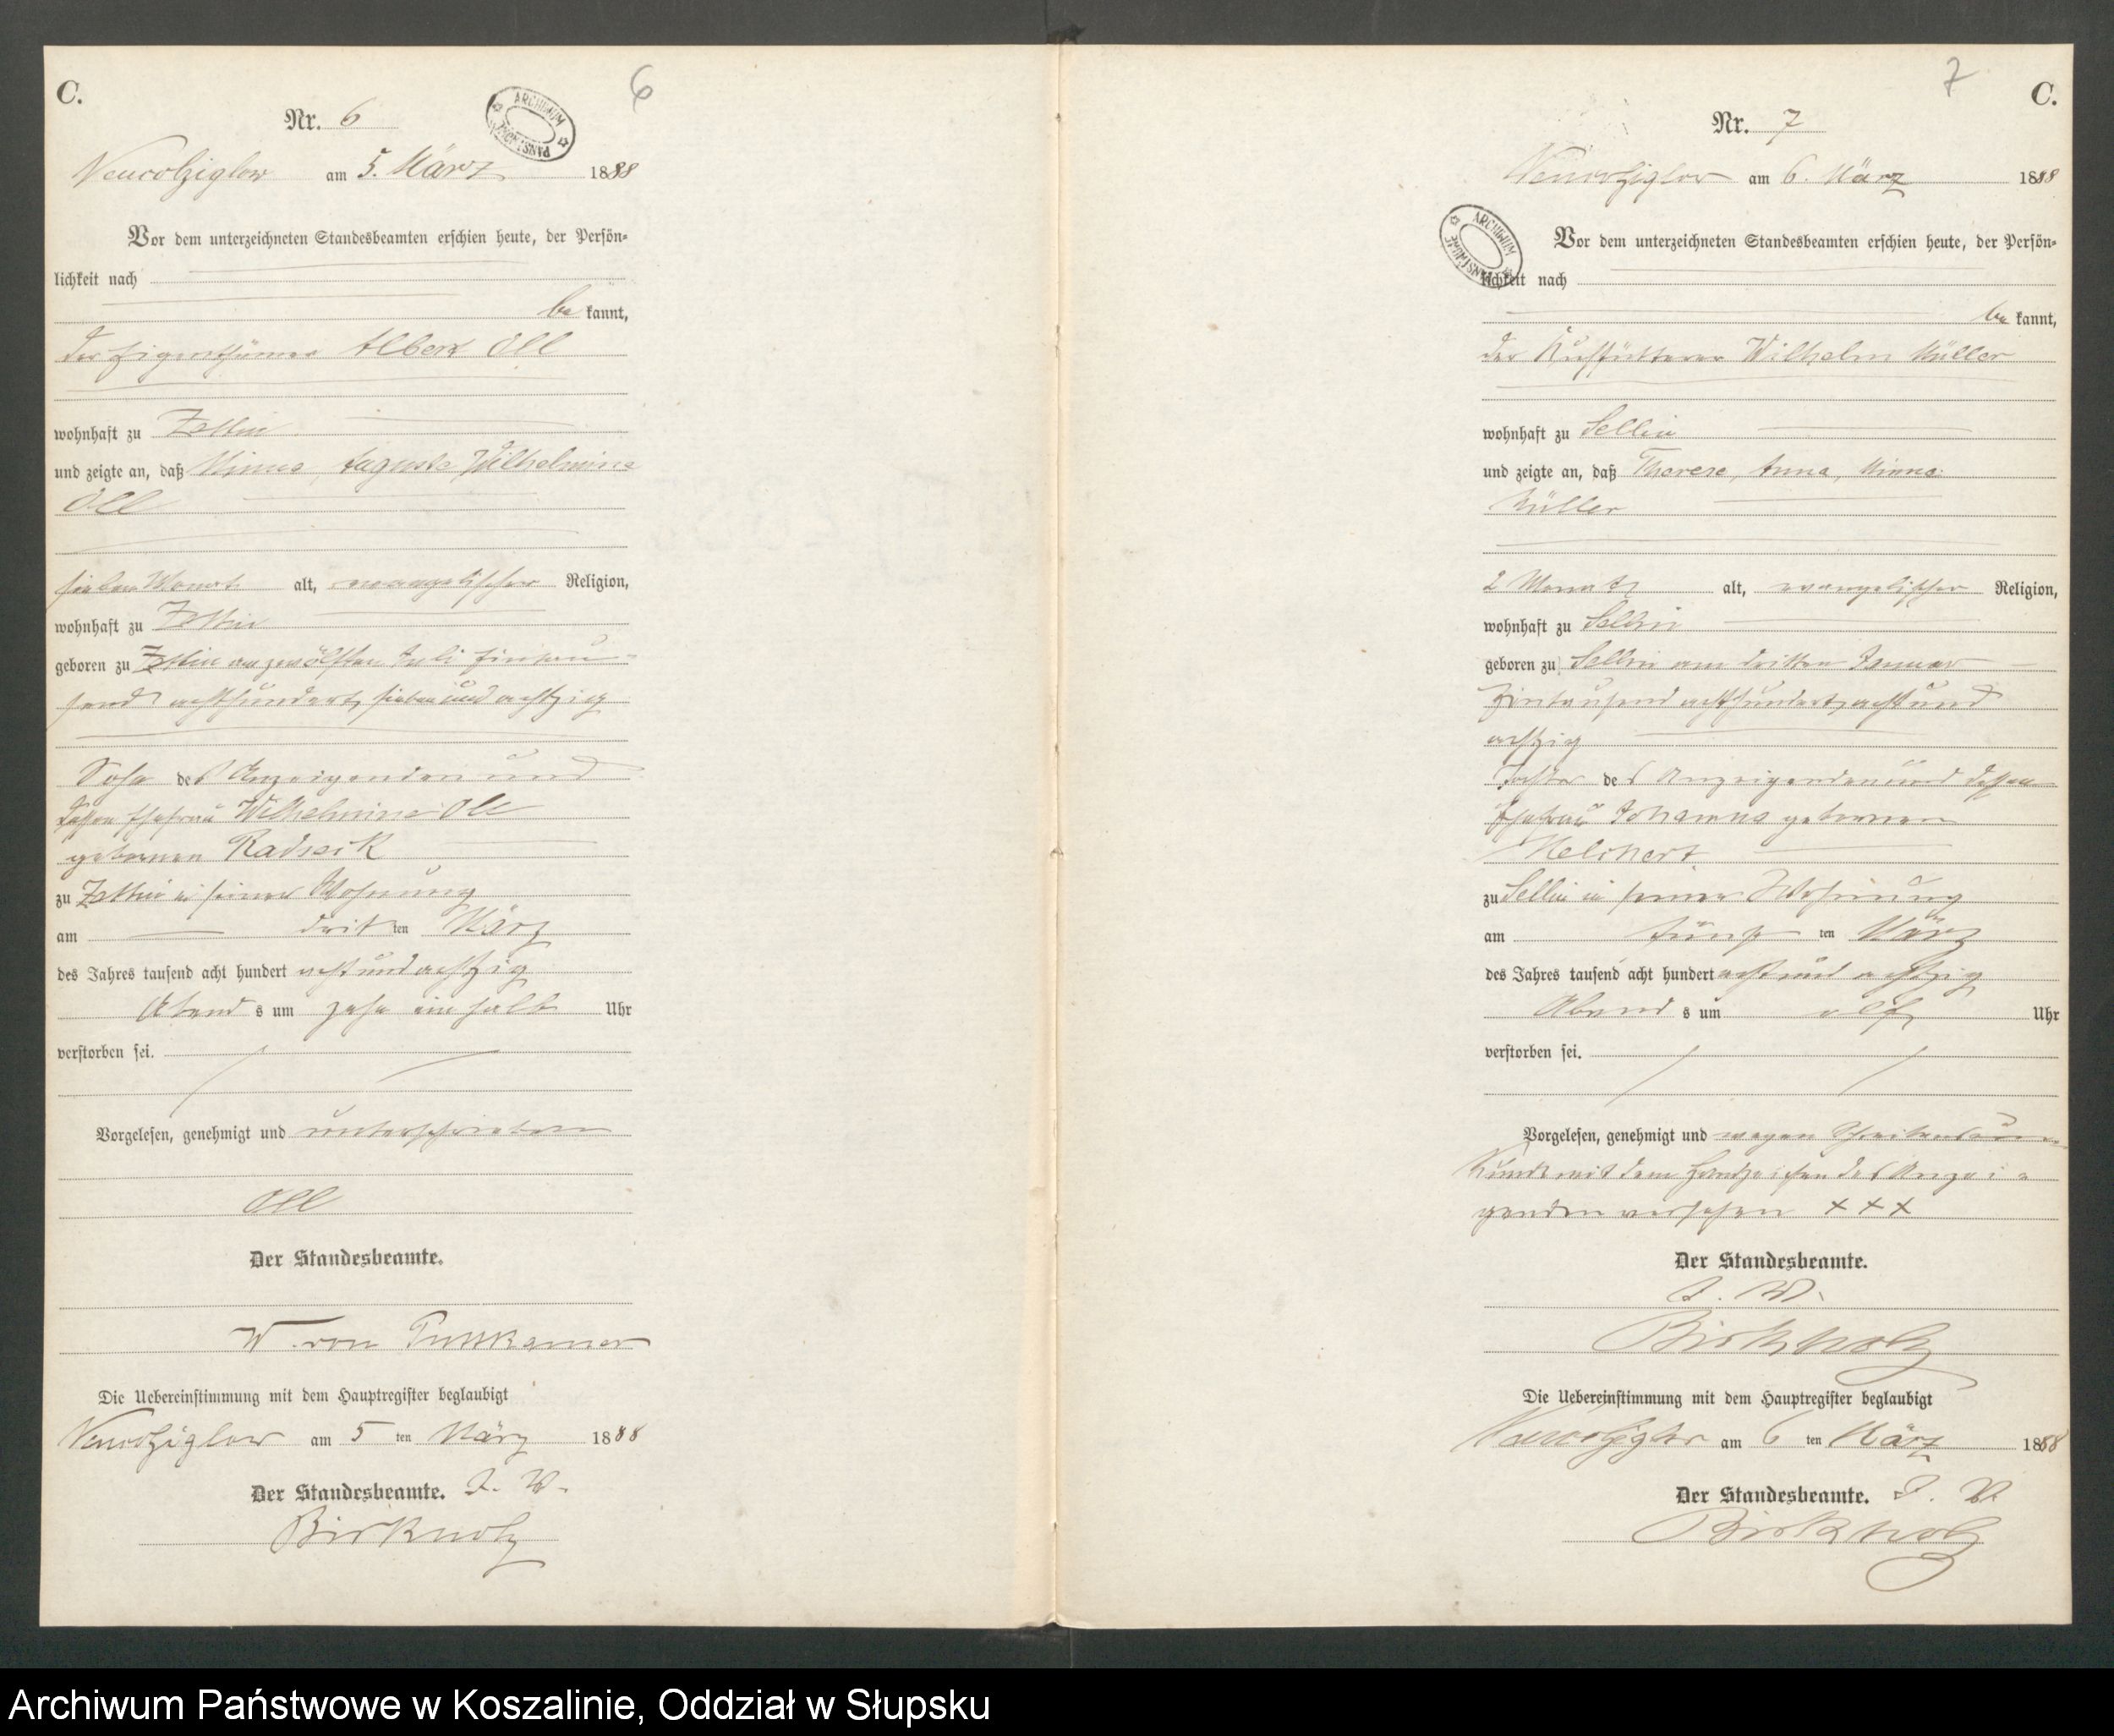 C.
6
Nr. 6
ARCHIWUM PAŃSTWOWE
Neucolziglow am 5. März 1888
Vor dem unterzeichneten Standesbeamten erschien heute, der Persön-
lichkeit nach
be kannt,
der Eigenthümer Albert Oll
wohnhaft zu Zettin
und zeigte an, daß Minna, Auguste, Wilhelmine
Oll
sieben Monat alt, evangelischer Religion,
wohnhaft zu Zettin
geboren zu Zettin am zwölften Juli eintau-
send achthundert sieben und achtzig
des Anzeigenden und
dessen Ehefrau Wilhelmine Oll
geborenen Radseik
zu Zettin in seiner Wohnung
am dritten März
des Jahres tausend acht hundert acht und achtzig
Abend s um zehn ein halb Uhr
verstorben sei.
Vorgelesen, genehmigt und unterschrieben
Oll
Der Standesbeamte.
W. von Puttkamer
Die Uebereinstimmung mit dem Hauptregister beglaubigt
Neucolziglow am 5 ten März 1888
Der Standesbeamte. I. V.
Birkholz
7
C.
Nr. 7
Neucolziglow am 6. März 1888
ARCHIWUM PAŃSTWOWE
Vor dem unterzeichneten Standesbeamten erschien heute, der Persön-
lichkeit nach
be kannt,
der Kuhfütterer Wilhelm Müller
wohnhaft zu Sellin
und zeigte an, daß Therese, Anna, Minna
Müller
2 Monate alt, evangelischer Religion,
wohnhaft zu Sellin
geboren zu Sellin am dritten Januar
Eintausend achthundert acht und
achtzig
Tochter des Anzeigenden und dessen
Ehefrau Johanna geborenen
zu Sellin in seiner Wohnung
am fünf ten März
des Jahres tausend acht hundert acht und achtzig
Abend s um elf Uhr
verstorben sei.
Vorgelesen, genehmigt und wegen Schreibensun-
kunde mit dem Handzeichen des Anzei-
genden versehen + + +
Der Standesbeamte.
I. V.
Birkholz
Die Uebereinstimmung mit dem Hauptregister beglaubigt
Neucolziglow am 6 ten März 1888
Der Standesbeamte. I. V.
Birkholz
Archiwum Państwowe w Koszalinie, Oddział w Słupsku